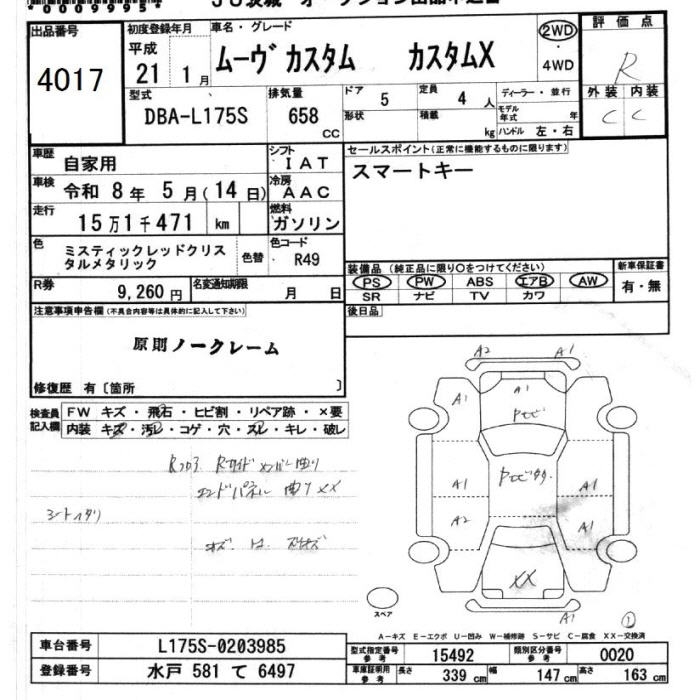 *00099954*
出品番号 初度登録年月 車名・グレード 2WD 評価点
4017 平成 21 1月 ムーヴ カスタム カスタムX ・4WD R
型式 排気量 ドア 定員 ディーラー・並行 外装 内装
DBA-L175S 658 CC 5 4 人 モデル年式 年 C C
形状 積載 kg ハンドル 左・右
車歴 自家用 シフト IAT セールスポイント(正常に機能するものに限ります)
車検 令和 8年 5月(14日) 冷房 AAC スマートキー
走行 15万1千471 km 燃料 ガソリン
色 ミスティックレッドクリスタルメタリック 色替 色コード R49
装備品(純正品に限り○をつけてください) 新車保証書
R券 9,260円 名変通知期限 月 日
PS PW ABS エアB AW 有・無
SR ナビ TV カワ
注意事項申告欄(不具合内容等は具体的に記入して下さい) 後日品
原則ノークレーム
修復歴 有〔箇所 〕
検査員記入欄 FW キズ・飛石・ヒビ割・リペア跡・×要
内装 キズ・汚レ・コゲ・穴・スレ・キレ・破レ
A2 A1
A1 A1
A1 A1
A2 A1
XX
A1
スペア
①
A-キズ E-エクボ U-凹み W-補修跡 S-サビ C-腐食 XX-交換済
車台番号 L175S-0203985 型式指定番号 参考 15492 類別区分番号 参考 0020
登録番号 水戸 581 て 6497 車庫証明用 参考 長さ 339 cm 幅 147 cm 高さ 163 cm